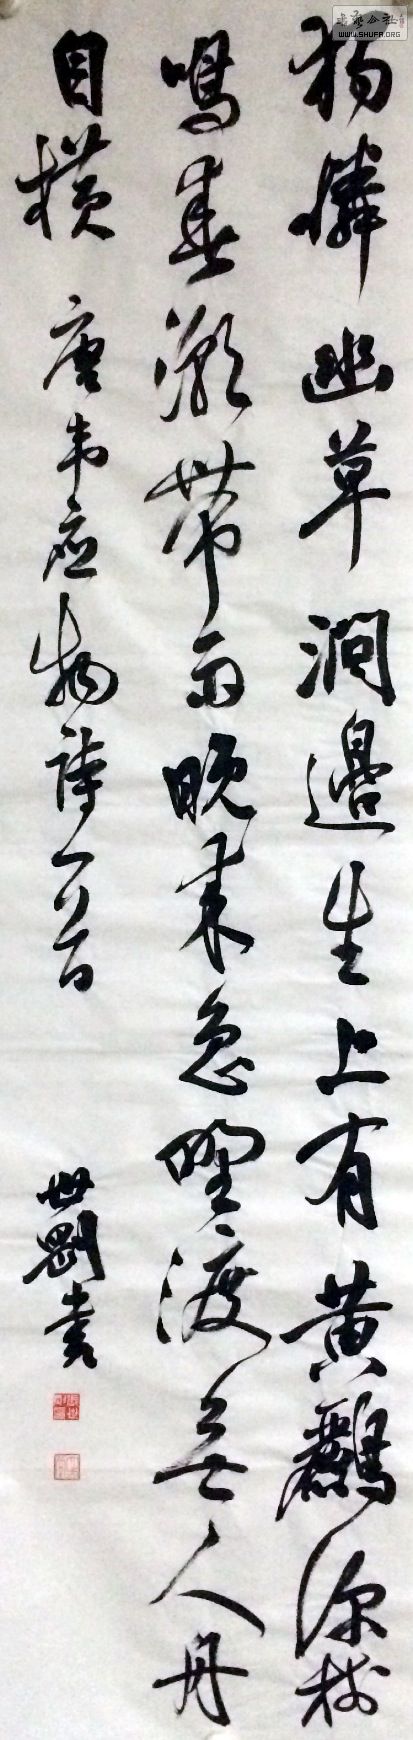 书艺公社
WWW.SHUFA.ORG
独憐幽草澗邊生上有黄鸝深树
鳴春潮帶雨晚来急野渡無人舟
自横 唐韦應物詩一首 世剛書